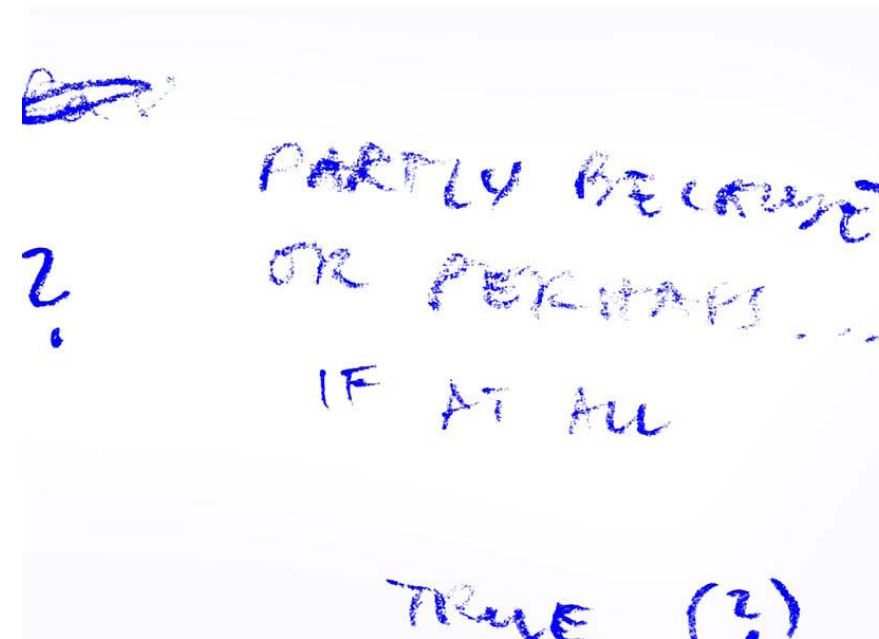 PARTLY BECAUSE
? OR PERHAPS ....
IF AT ALL
TRUE (?)